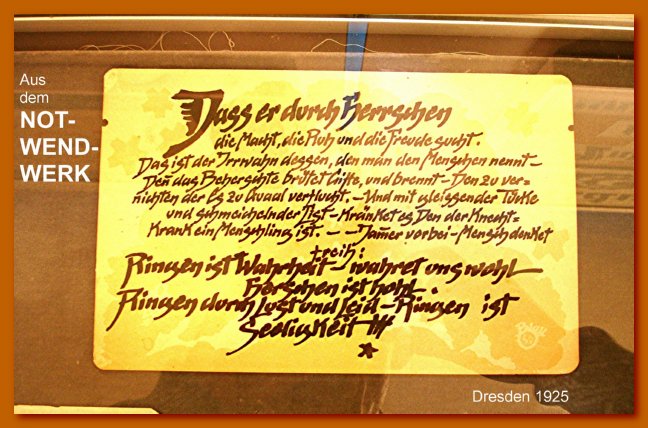 Aus
dem
NOT-
WEND-
WERK
Dass er durch Herrschen
die Macht, die Ruh und die Freude sucht.
Das ist der Irrwahn dessen, den man den Menschen nennt–
Deñ das Beherschte brütet Gifte, und brennt – Den zu ver=
nichten der Es zu Quaal verflucht. –Und mit gleissender Tücke
und schmeichelnder List – Kränket es Den der Knecht=
Krank ein Menschling ist. – – Jam̄er vorbei – Mensch denket
freih:
Ringen ist Wahrheit – wahret uns wohl
Herschen ist hohl.
Ringen durch Lust und Leid – Ringen ist
Seeligkeit !!!
Dresden 1925